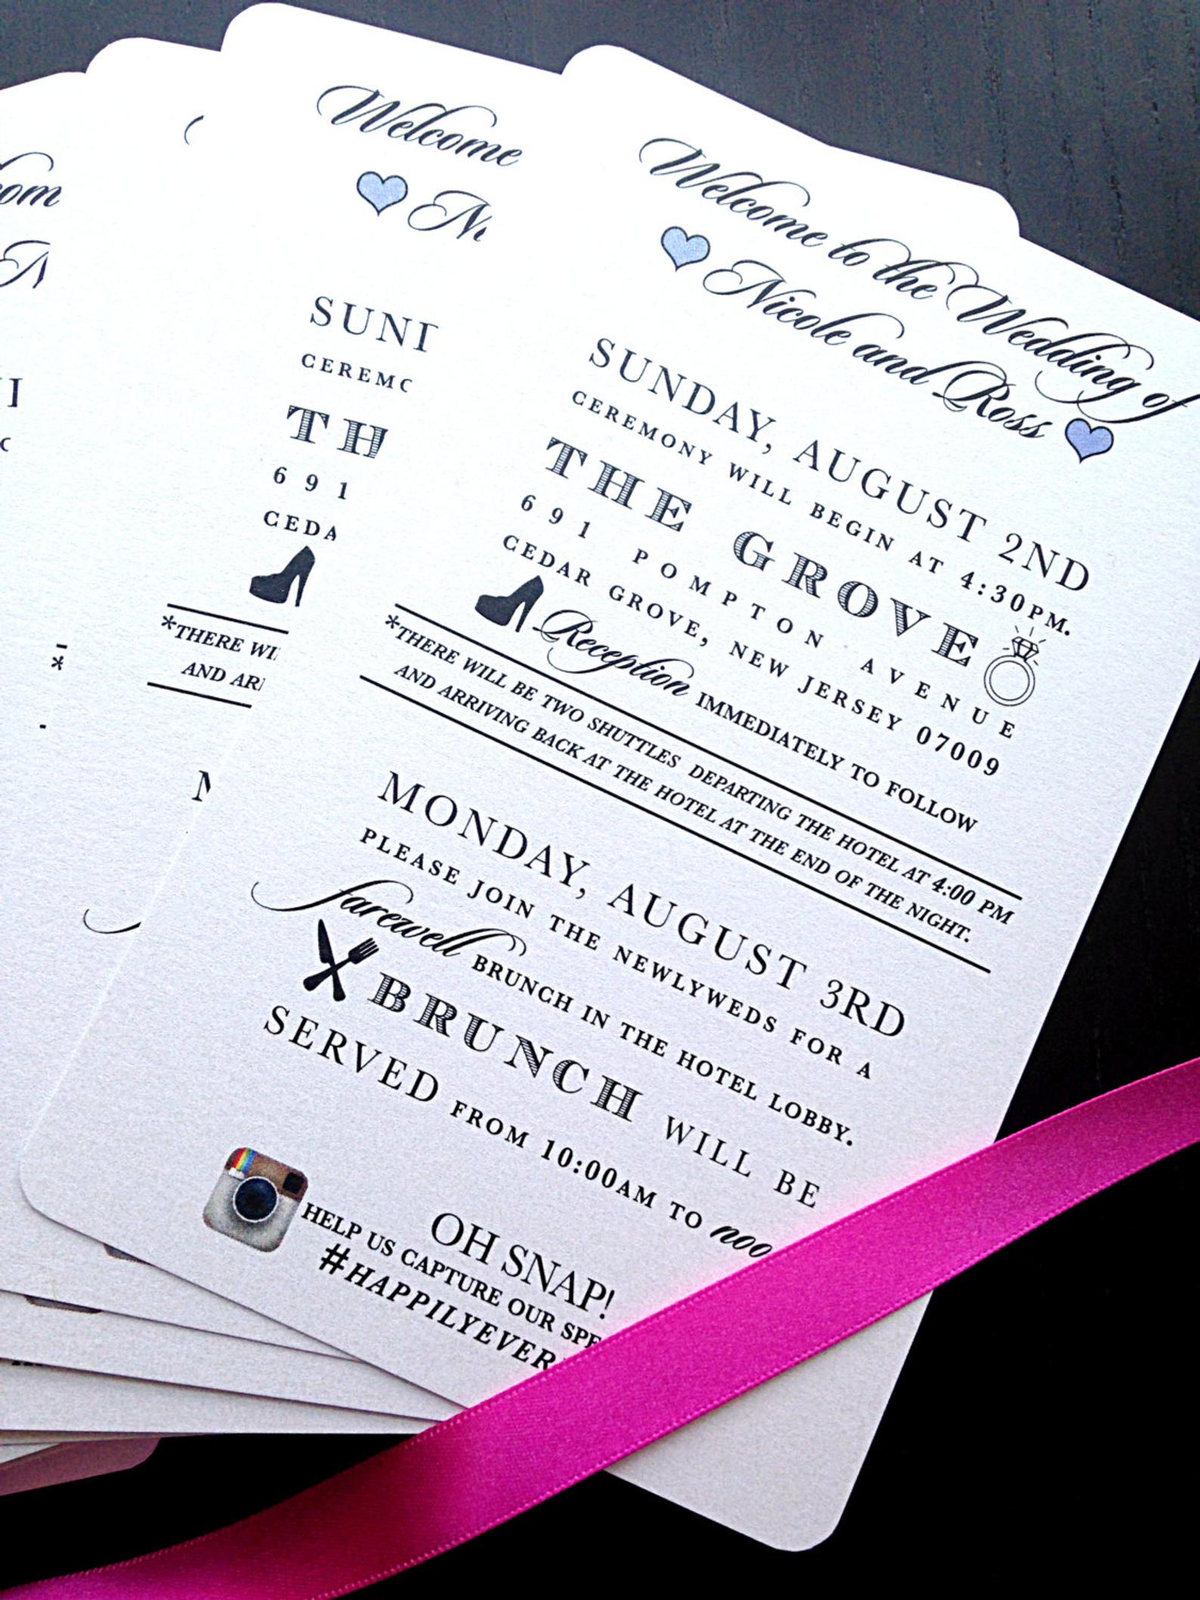 Welcome to the Wedding of
Nicole and Ross
SUNDAY, AUGUST 2ND
CEREMONY WILL BEGIN AT 4:30PM.
THE GROVE
691 POMPTON AVENUE
CEDAR GROVE, NEW JERSEY 07009
Reception IMMEDIATELY TO FOLLOW
*THERE WILL BE TWO SHUTTLES DEPARTING THE HOTEL AT 4:00 PM
AND ARRIVING BACK AT THE HOTEL AT THE END OF THE NIGHT.
MONDAY, AUGUST 3RD
PLEASE JOIN THE NEWLYWEDS FOR A
farewell BRUNCH IN THE HOTEL LOBBY.
BRUNCH WILL BE
SERVED FROM 10:00AM TO noo
OH SNAP!
HELP US CAPTURE OUR SPE
#HAPPILYEVER
Welcome
Ni
SUND
CEREMO
TH
691
CEDA
*THERE WI
AND ARR
M
om
N
*